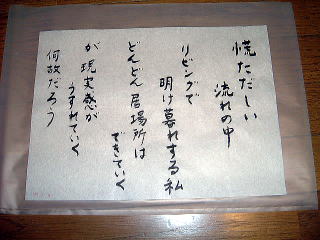 慌ただしい
流れの中
リビングで
明け暮れする私
どんどん居場所は
できていく
が現実感が
うすれていく
何故だろう